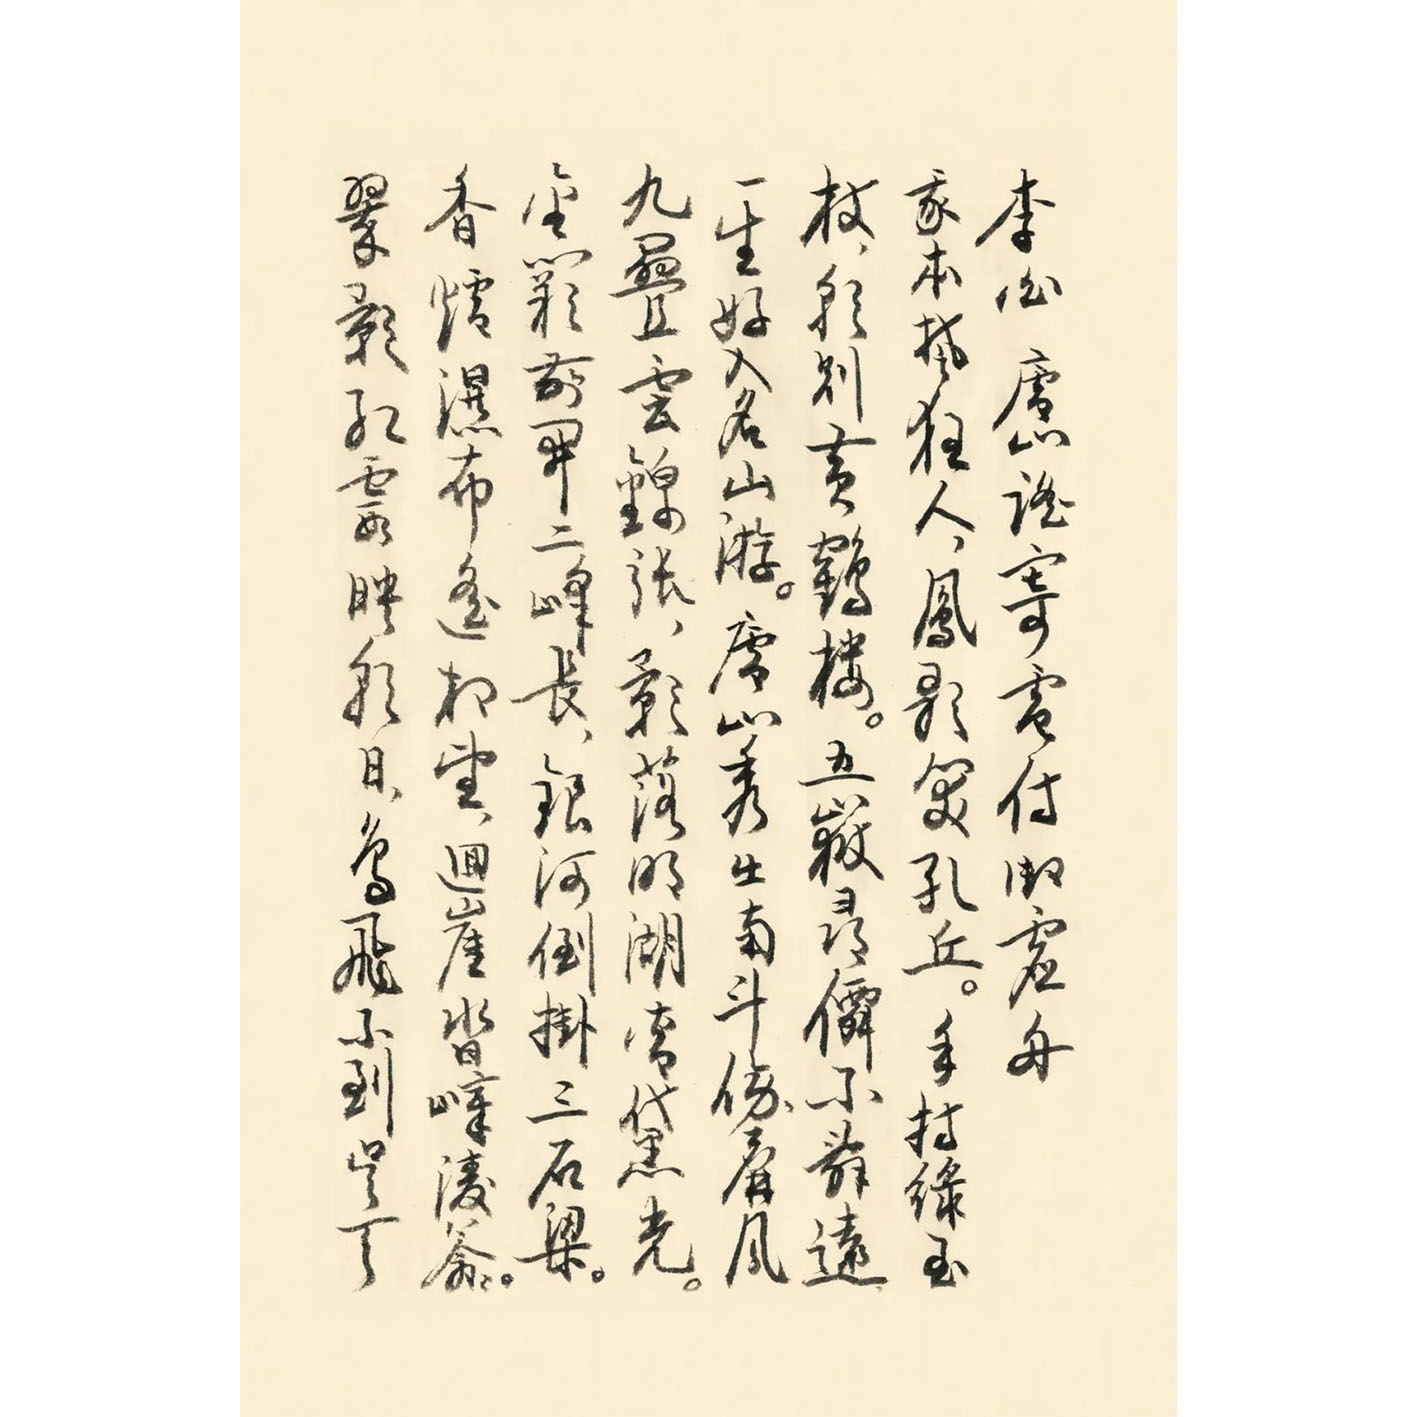 李白 廬山謠寄盧侍御虛舟
我本楚狂人，鳳歌笑孔丘。手持綠玉
杖，朝別黃鶴樓。五嶽尋僊不辭遠
一生好入名山游。廬山秀出南斗傍屏風
九疊雲錦張，影落明湖青黛光。
金闕前開二峰長，銀河倒掛三石梁。
香爐瀑布遙相望，迴崖沓嶂淩蒼蒼。
翠影紅霞映朝日，鳥飛不到吳天